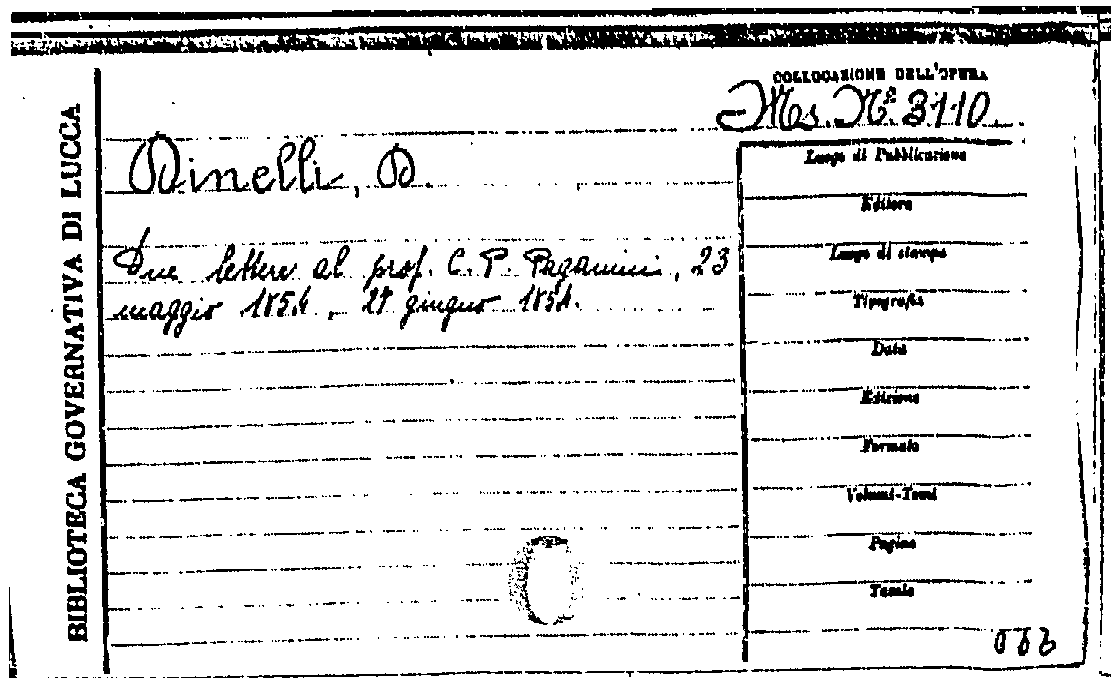 BIBLIOTECA GOVERNATIVA DI LUCCA
COLLOCAZIONE DELL'OPERA
Ms. N.º 3110.
Dinelli, D.
Due lettere al prof. C. P. Paganini, 23
maggio 1854, 27 giugno 1854.
Luogo di Pubblicazione
Editore
Luogo di stampa
Tipografia
Data
Edizione
Formato
Volumi-Tomi
Pagine
Tavole